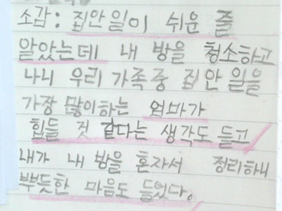 소감: 집안일이 쉬운 줄
알았는데 내 방을 청소하고
나니 우리 가족중 집안 일을
가장 많이하는 엄마가
힘들 것 같다는 생각도 들고
내가 내 방을 혼자서 정리하니
뿌듯한 마음도 들었다.